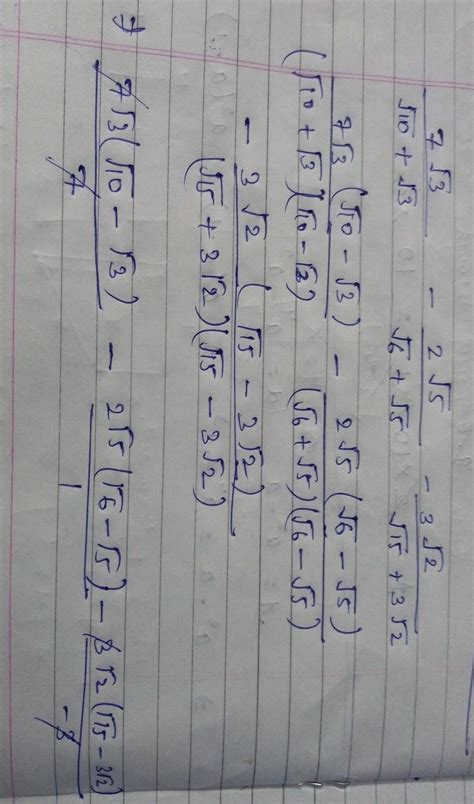 7√3 / √10 + √3 − 2√5 / √6 + √5 − 3√2 / √15 + 3√2
7√3 (√10 − √3) / (√10 + √3)(√10 − √3) − 2√5 (√6 − √5) / (√6 + √5)(√6 − √5)
− 3√2 (√15 − 3√2) / (√15 + 3√2)(√15 − 3√2)
⇒ 7√3(√10 − √3) / 7 − 2√5(√6 − √5) / 1 − 3√2(√15 − 3√2) / −3